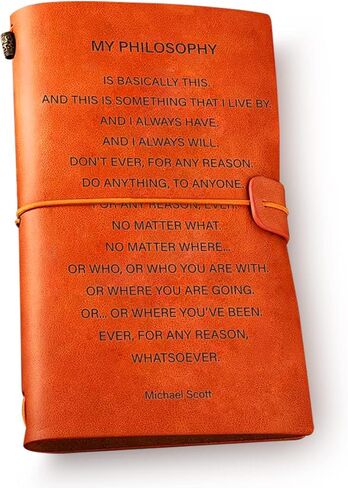 MY PHILOSOPHY
IS BASICALLY THIS.
AND THIS IS SOMETHING THAT I LIVE BY.
AND I ALWAYS HAVE.
AND I ALWAYS WILL.
DON'T EVER, FOR ANY REASON.
DO ANYTHING, TO ANYONE.
FOR ANY REASON, EVER.
NO MATTER WHAT.
NO MATTER WHERE...
OR WHO, OR WHO YOU ARE WITH.
OR WHERE YOU ARE GOING.
OR... OR WHERE YOU'VE BEEN.
EVER, FOR ANY REASON,
WHATSOEVER.
Michael Scott